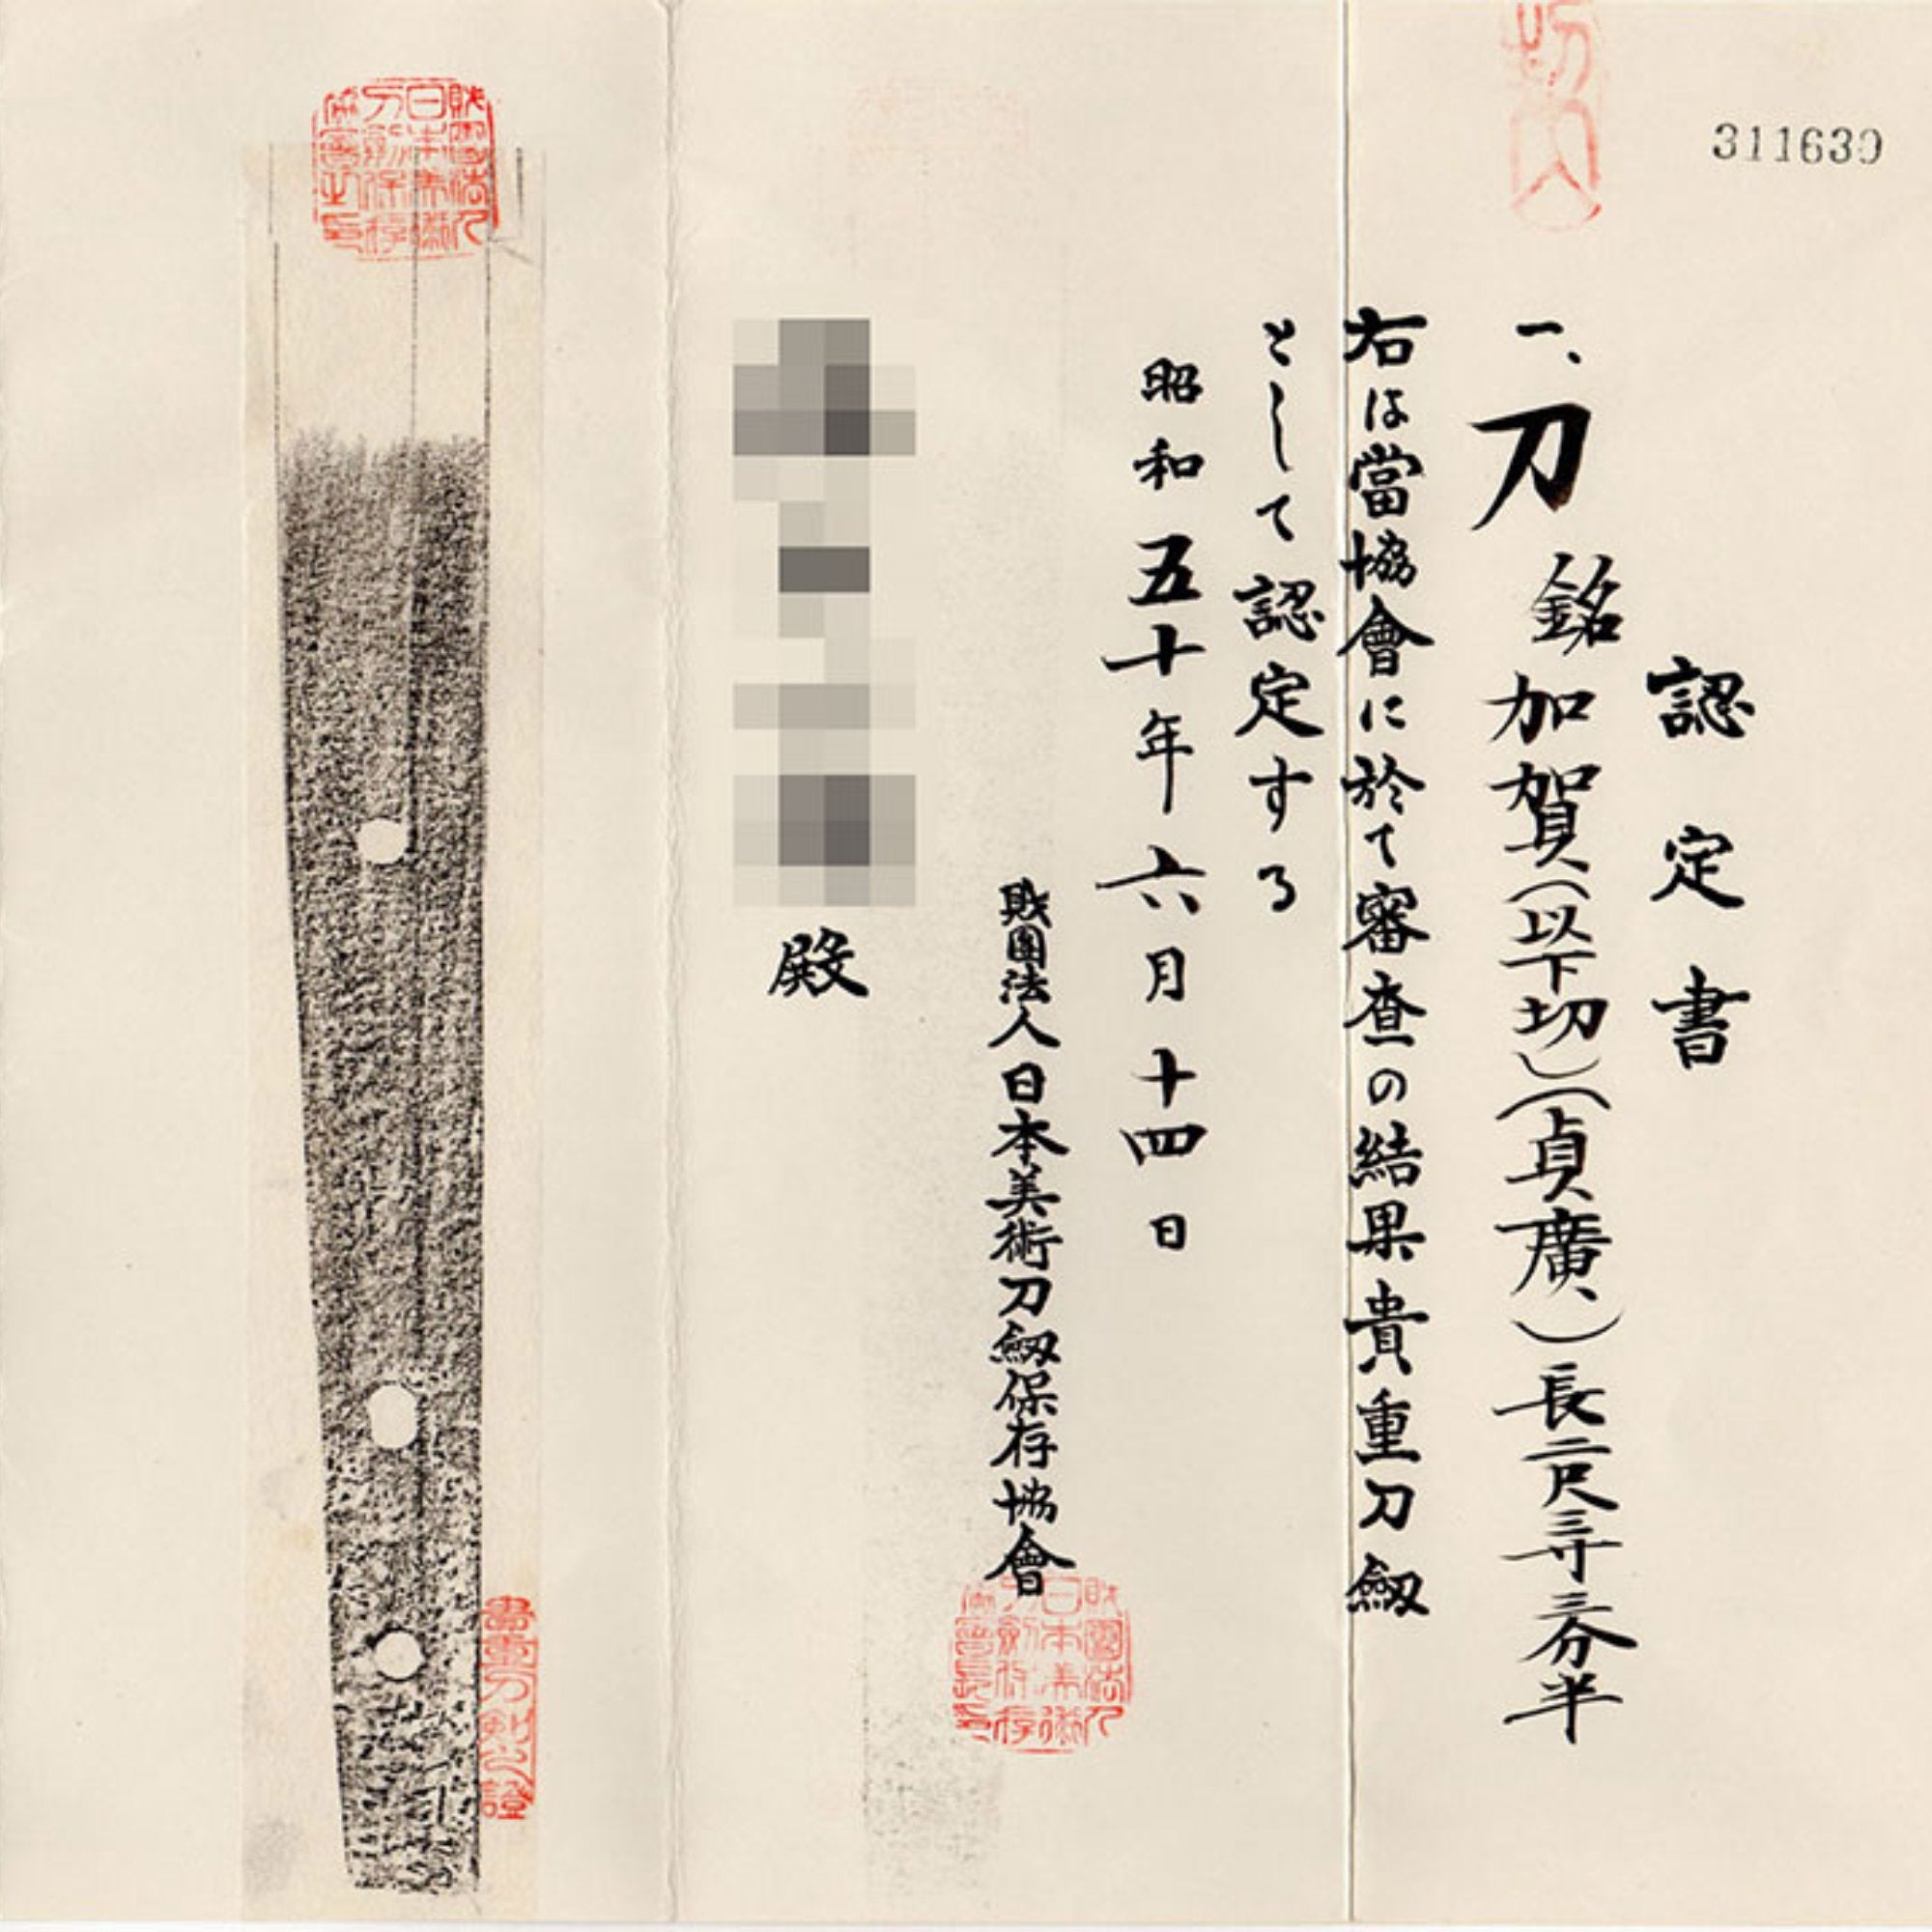 311630
認定書
一、刀 銘 加賀(以下切)(貞廣)長二尺三寸三分半
右は當協會に於て審査の結果貴重刀劔
として認定する
昭和五十年六月十四日
財團法人日本美術刀劔保存協會
殿
財團法人日本美術刀剣保存協會之印
財團法人日本美術刀剣保存協會長印
貴重刀剣之證